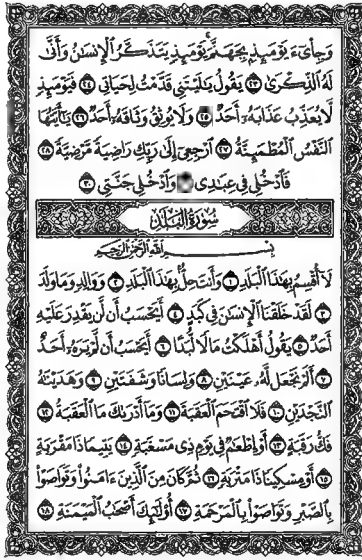 وَجِا۟ىٓءَ يَوۡمَئِذِۭ بِجَهَنَّمَۚ يَوۡمَئِذٖ يَتَذَكَّرُ ٱلۡإِنسَٰنُ وَأَنَّىٰ
لَهُ ٱلذِّكۡرَىٰ ٢٣ يَقُولُ يَٰلَيۡتَنِي قَدَّمۡتُ لِحَيَاتِي ٢٤ فَيَوۡمَئِذٖ
لَّا يُعَذِّبُ عَذَابَهُۥٓ أَحَدٞ ٢٥ وَلَا يُوثِقُ وَثَاقَهُۥٓ أَحَدٞ ٢٦ يَٰٓأَيَّتُهَا
ٱلنَّفۡسُ ٱلۡمُطۡمَئِنَّةُ ٢٧ ٱرۡجِعِيٓ إِلَىٰ رَبِّكِ رَاضِيَةٗ مَّرۡضِيَّةٗ ٢٨
فَٱدۡخُلِي فِي عِبَٰدِي وَٱدۡخُلِي جَنَّتِي ٣٠
سُورَةُ الْبَلَدِ
بِسۡمِ ٱللَّهِ ٱلرَّحۡمَٰنِ ٱلرَّحِيمِ
لَآ أُقۡسِمُ بِهَٰذَا ٱلۡبَلَدِ ١ وَأَنتَ حِلُّۢ بِهَٰذَا ٱلۡبَلَدِ ٢ وَوَالِدٖ وَمَا وَلَدَ
٣ لَقَدۡ خَلَقۡنَا ٱلۡإِنسَٰنَ فِي كَبَدٍ ٤ أَيَحۡسَبُ أَن لَّن يَقۡدِرَ عَلَيۡهِ
أَحَدٞ ٥ يَقُولُ أَهۡلَكۡتُ مَالٗا لُّبَدًا ٦ أَيَحۡسَبُ أَن لَّمۡ يَرَهُۥٓ أَحَدٌ
٧ أَلَمۡ نَجۡعَل لَّهُۥ عَيۡنَيۡنِ ٨ وَلِسَانٗا وَشَفَتَيۡنِ ٩ وَهَدَيۡنَٰهُ
ٱلنَّجۡدَيۡنِ ١٠ فَلَا ٱقۡتَحَمَ ٱلۡعَقَبَةَ ١١ وَمَآ أَدۡرَىٰكَ مَا ٱلۡعَقَبَةُ ١٢
فَكُّ رَقَبَةٍ ١٣ أَوۡ إِطۡعَٰمٞ فِي يَوۡمٖ ذِي مَسۡغَبَةٖ ١٤ يَتِيمٗا ذَا مَقۡرَبَةٍ
١٥ أَوۡ مِسۡكِينٗا ذَا مَتۡرَبَةٖ ١٦ ثُمَّ كَانَ مِنَ ٱلَّذِينَ ءَامَنُواْ وَتَوَاصَوۡاْ
بِٱلصَّبۡرِ وَتَوَاصَوۡاْ بِٱلۡمَرۡحَمَةِ ١٧ أُوْلَٰٓئِكَ أَصۡحَٰبُ ٱلۡمَيۡمَنَةِ ١٨